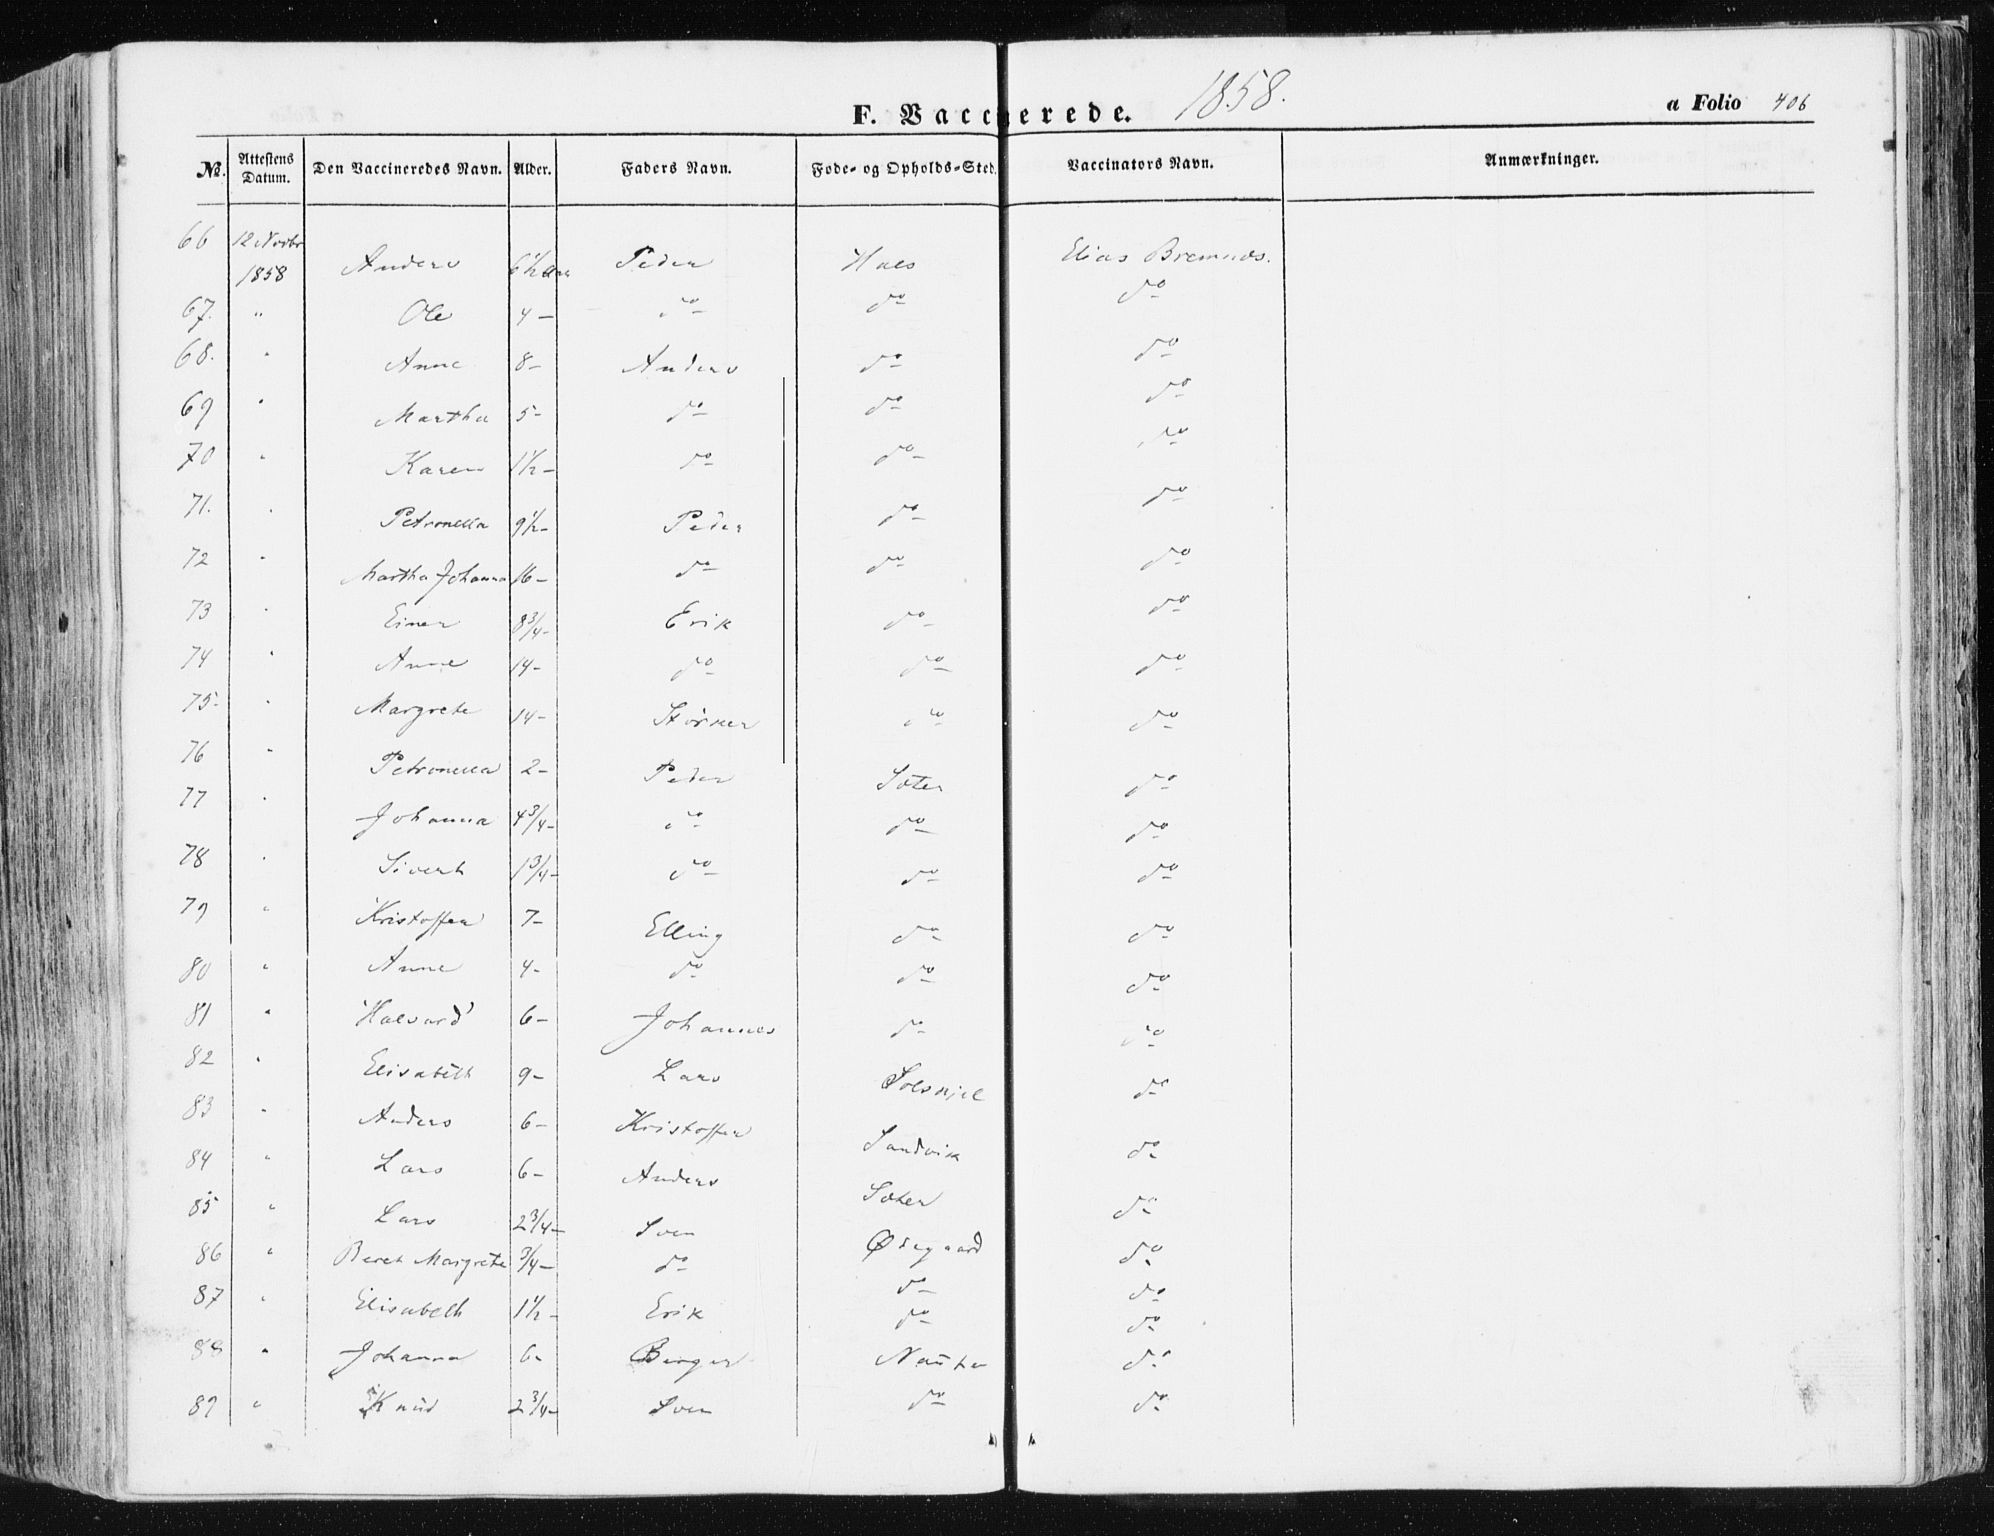 F. Vaccinerede. 1858. a Folio 406
№. Attestens Datum. Den Vaccineredes Navn. Alder. Faders Navn. Føde- og Opholds-Sted. Vaccinators Navn. Anmærkninger.
66 12 Novbr 1858 Anders 6½ Aar Peder Hals Elias Bremnes.
67. " Ole 4 – do do do
68. " Anne 8 – Anders do do
69 " Martha 5 – do do do
70 " Karen 1½ – do do do
71. " Petronella 9½ – Peder do do
72 " Martha Johanna 16 – do do do
73 " Einer 8¾ – Erik do do
74 " Anne 14 – do do do
75 " Margrete 14 – Størker do do
76 " Petronella 2 – Peder Sæter do
77 " Johanna 4¾ – do do do
78 " Sivert 1¾ – do do do
79 " Kristoffer 7 – Elling do do
80 " Anne 4 – do do do
81 " Halvard 6 – Johannes do do
82 " Elisabeth 9 – Lars Solskjel do
83 " Anders 6 – Kristoffer Sandvik do
84 " Lars 6 – Anders Sæter do
85 " Lars 2¾ – Sven Ødegaard do
86 " Beret Margrete ¾ – do do do
87 " Elisabeth 1½ – Erik do do
88 " Johanna 6 – Birger do
89 " Knud 2¾ – Sven do do